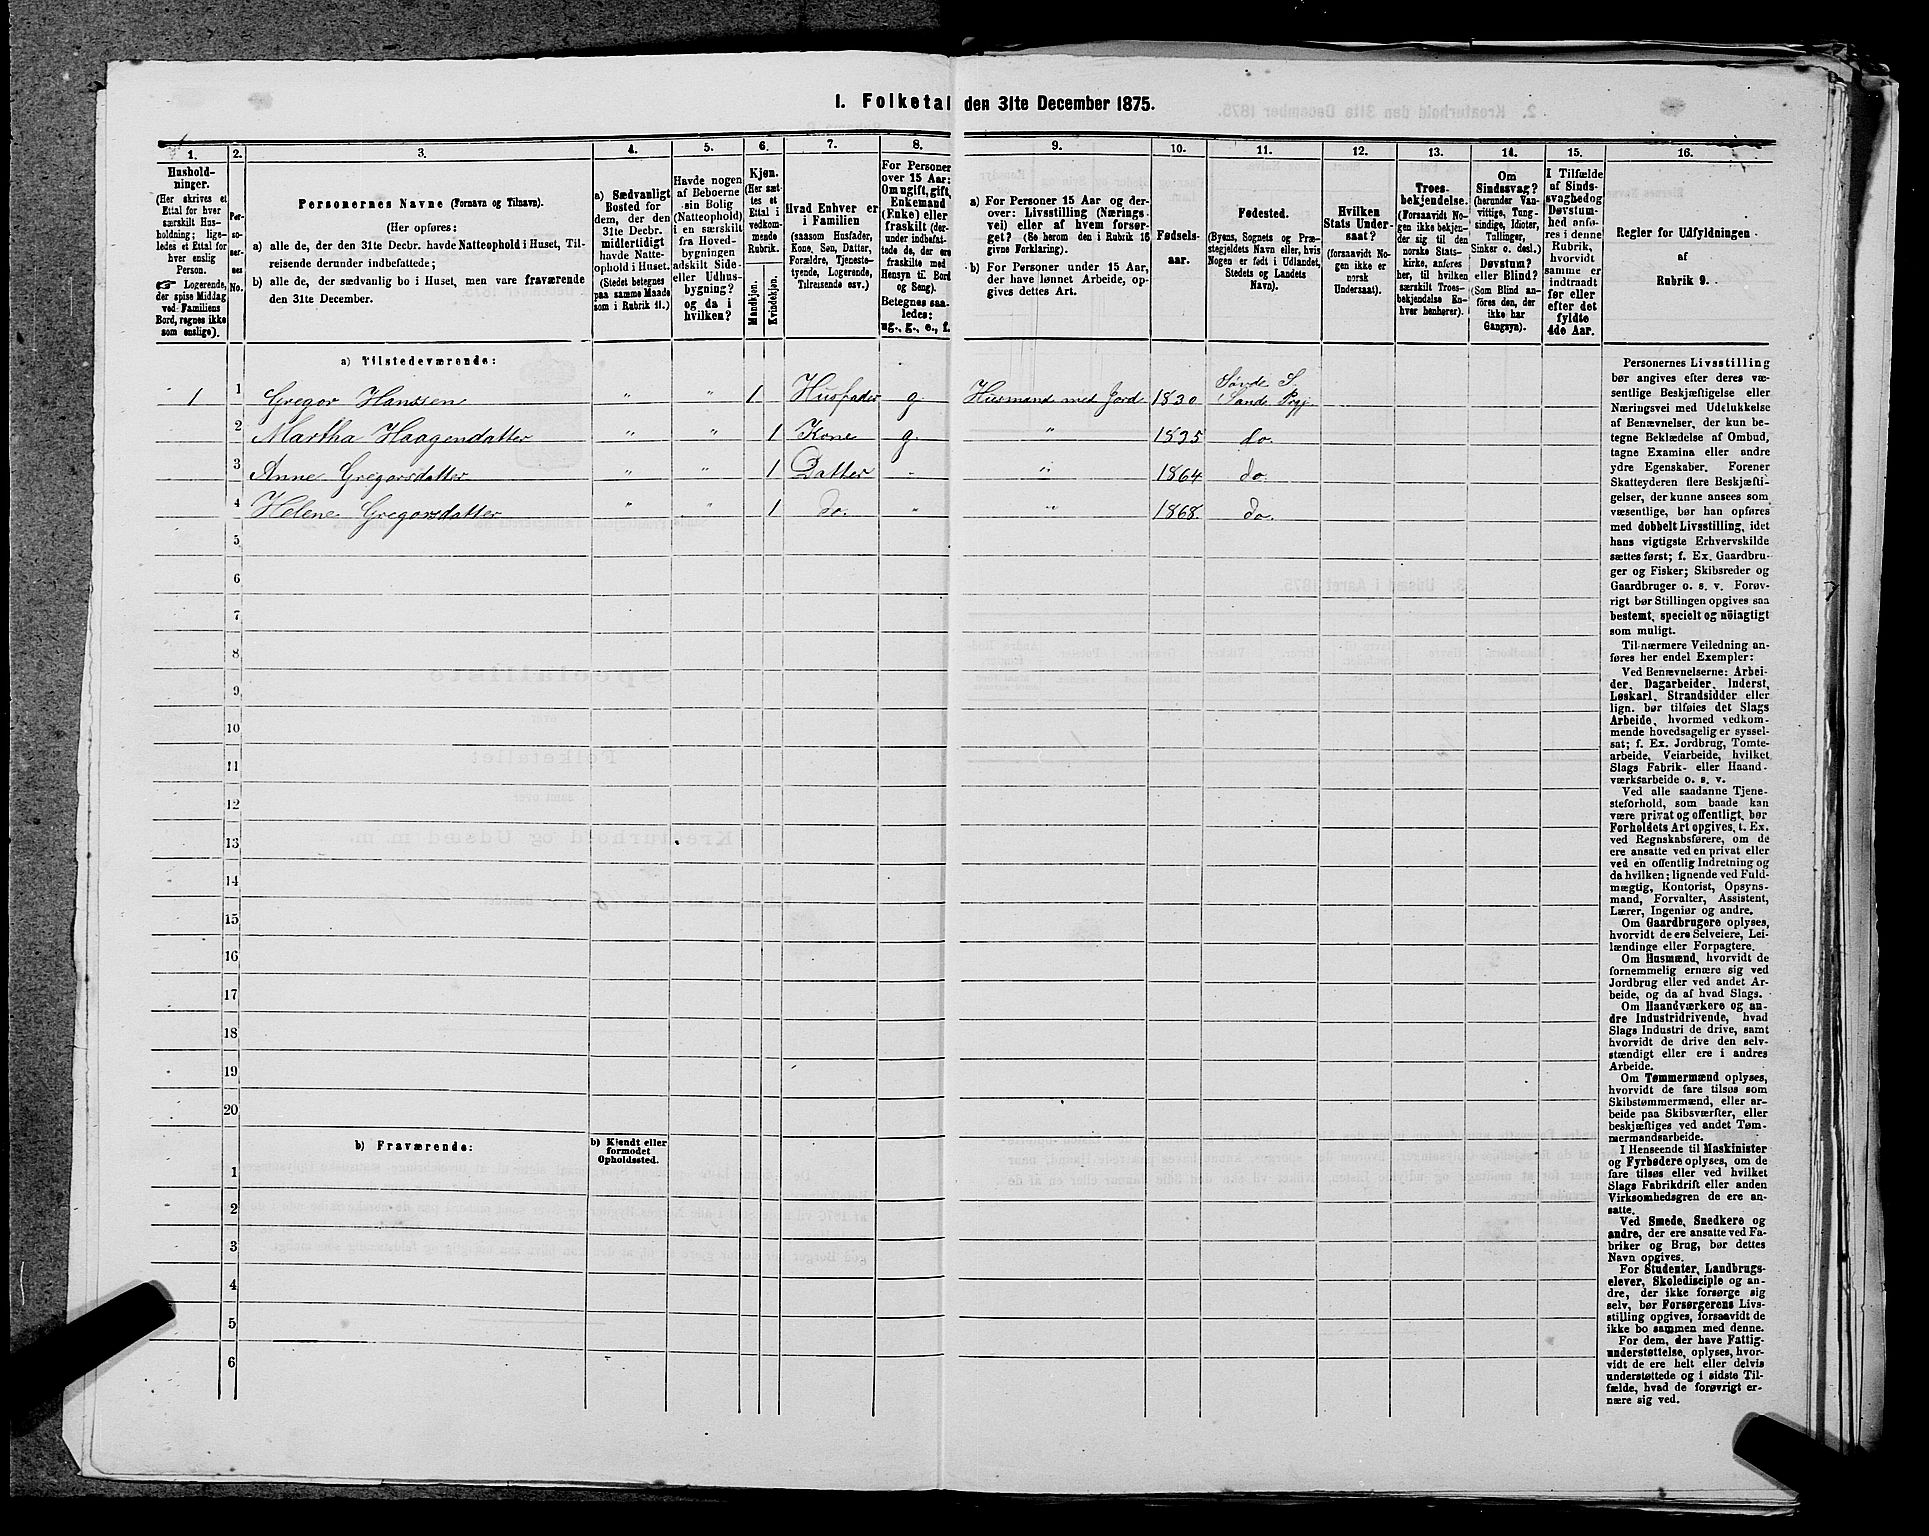 1. Folketal den 31te December 1875.
1. 2. 3. 4. 5. 6. 7. 8. 9. 10. 11. 12. 13. 14. 15. 16.
Hushold-
ninger.
(Her skrives et
Ettal for hver
særskilt Hus-
holdning; lige-
ledes et Ettal for
hver enslig
Person.
☛ Logerende,
der spise Middag
ved Familiens
Bord, regnes ikke
som enslige).
Per-
so-
ner-
nes
No.
Personernes Navne (Fornavn og Tilnavn).
(Her opføres:
a) alle de, der den 31te Decbr. havde Natteophold i Huset, Til-
reisende derunder indbefattede;
b) alle de, der sædvanlig bo i Huset, men vare fraværende
den 31te December.
a) Sædvanligt
Bosted for
dem, der den
31te Decbr.
midlertidigt
havde Natte-
ophold i Huset.
(Stedet betegnes
paa samme Maade
som i Rubrik 11.)
Havde nogen
af Beboerne
sin Bolig
(Natteophold)
i en særskilt
fra Hoved-
bygningen
adskilt Side-
eller Udhus-
bygning?
og da i
hvilken?
Kjøn.
(Her sæt-
tes et
Ettal i
vedkom-
mende
Rubrik.
Mandkjøn.
Kvindekjøn.
Hvad Enhver er
i Familien
(saasom Husfader,
Kone, Søn, Datter,
Forældre, Tjeneste-
tyende, Logerende,
Tilreisende osv.)
For Personer
over 15 Aar:
Om ugift, gift,
Enkemand
(Enke) eller
fraskilt (der-
under indbefat-
tede de, der ere
fraskilte med
Hensyn til Bord
og Seng).
Betegnes saa-
ledes:
ug., g., e., f.
a) For Personer 15 Aar og der-
over: Livsstilling (Nærings-
vei) eller af hvem forsør-
get? (Se herom den i Rubrik 16
givne Forklaring).
b) For Personer under 15 Aar,
der have lønnet Arbeide, op-
gives dettes Art.
Fødsels-
aar.
Fødested.
(Byens, Sognets og Præ-
stegjeldets Navn eller, hvis
Nogen er født i Udlandet,
Stedets og Landets
Navn).
Hvilken
Stats Under-
saat?
(forsaavidt No-
gen ikke er
norsk
Undersaat).
Troes-
bekjendelse.
(Forsaavidt No-
gen ikke bekjen-
der sig til den
norske Stats-
kirke, anføres
her, til hvilken
særskilt Troes-
bekjendelse En-
hver henhører).
Om
Sindssvag?
(herunder Van-
vittige, Tung-
sindige, Idioter,
Tullinger,
Sinker o. desl.)
Døvstum?
eller Blind?
(Som Blind an-
føres den, der
ikke har
Gangsyn).
I Tilfælde
af Sinds-
svaghed og
Døvstum-
hed anfø-
res i denne
Rubrik,
hvorvidt
samme er
indtraadt
før eller
efter det
fyldte
4de Aar.
Regler for Udfyldningen
af
Rubrik 9.
a) Tilstedeværende:
1 1 Gregor Hanssen " " 1 Husfader g. Husmand med Jord 1830 Sande S. Sande Prgj.
2 Martha Haagendatter " " 1 Kone g. " 1835 do.
3 Anne Gregorsdatter " " 1 Datter - " 1864 do.
4 Helene Gregorsdatter " " 1 do. " " 1868. do.
5
6
7
8
9
10
11
12
13
14
15
16
17
18
19
20
b) Fraværende:
b) Kjendt eller
formodet
Opholdssted.
1
2
3
4
5
6
Personernes Livsstilling
bør angives efter deres væ-
sentlige Beskjæftigelse eller
Næringsvei med Udelukkelse
af Benævnelser, der kun be-
tegne Beklædelse af Ombud,
tagne Examina eller andre
ydre Egenskaber. Forener
Skatteyderen flere Beskjæfti-
gelser, der kunne ansees som
væsentlige, bør han opføres
med dobbelt Livsstilling, idet
hans vigtigste Erhvervskilde
sættes først; f. Ex. Gaardbru-
ger og Fisker; Skibsreder og
Gaardbruger o. s. v. Forøv-
rigt bør Stillingen opgives saa
bestemt, specielt og nöiagtigt
som muligt.
Til nærmere Veiledning an-
føres her endel Exempler:
Ved Benævnelserne: Arbei-
der, Dagarbeider, Inderst,
Løskarl, Strandsidder eller
lign. bør tilføies det Slags
Arbeide, hvormed vedkom-
mende hovedsagelig er syssel-
sat; f. Ex. Jordbrug, Tomte-
arbeide, Veiarbeide, hvilket
Slags Fabrik- eller Haand-
værksarbeide o. s. v.
Ved alle saadanne Tjene-
steforhold, som baade kan
være privat og offentligt, bør
Forholdets Art opgives, t. Ex.
ved Regnskabsførere, om de
ere ansatte ved en privat eller
ved en offentlig Indretning og
da hvilken; lignende ved Fuld-
mægtig, Kontorist, Opsyns-
mand, Forvalter, Assistent,
Lærer, Ingeniør og andre.
Om Gaardbrugere oplyses,
hvorvidt de ere Selveiere, Lei-
lændinge eller Forpagtere.
Om Husmænd, hvorvidt de
fornemmelig ernære sig ved
Jordbrug eller ved andet Ar-
beide, og da af hvad Slags.
Om Haandværkere og an-
dre Industridrivende, hvad
Slags Industri de drive, samt
hvorvidt de drive den selv-
stændigt eller ere i andres
Arbeide.
Om Tømmermænd oplyses,
hvorvidt de fare tilsøs som
Skibstømmermænd, eller ar-
beide paa Skibsværfter, eller
beskjæftiges ved andet Tøm-
mermandsarbeide.
I Henseende til Maskinister
og Fyrbødere oplyses, om de
fare tilsøs eller ved hvilket
Slags Fabrikdrift eller anden
Virksomhedsgren de ere an-
satte.
Ved Smede, Snedkere og
andre, der ere ansatte ved Fa-
briker og Brug, bør dettes
Navn opgives.
For Studenter, Landbrugs-
elever, Skoledisciple og an-
dre, der ikke forsørge sig
selv, bør Forsørgerens Livs-
stilling opgives, forsaavidt de
ikke bo sammen med denne.
For dem, der have Fattig-
understøttelse, oplyses, hvor-
vidt de ere helt eller delvis
understøttede og i sidste Til-
fælde, hvad de forøvrigt er-
nære sig ved.